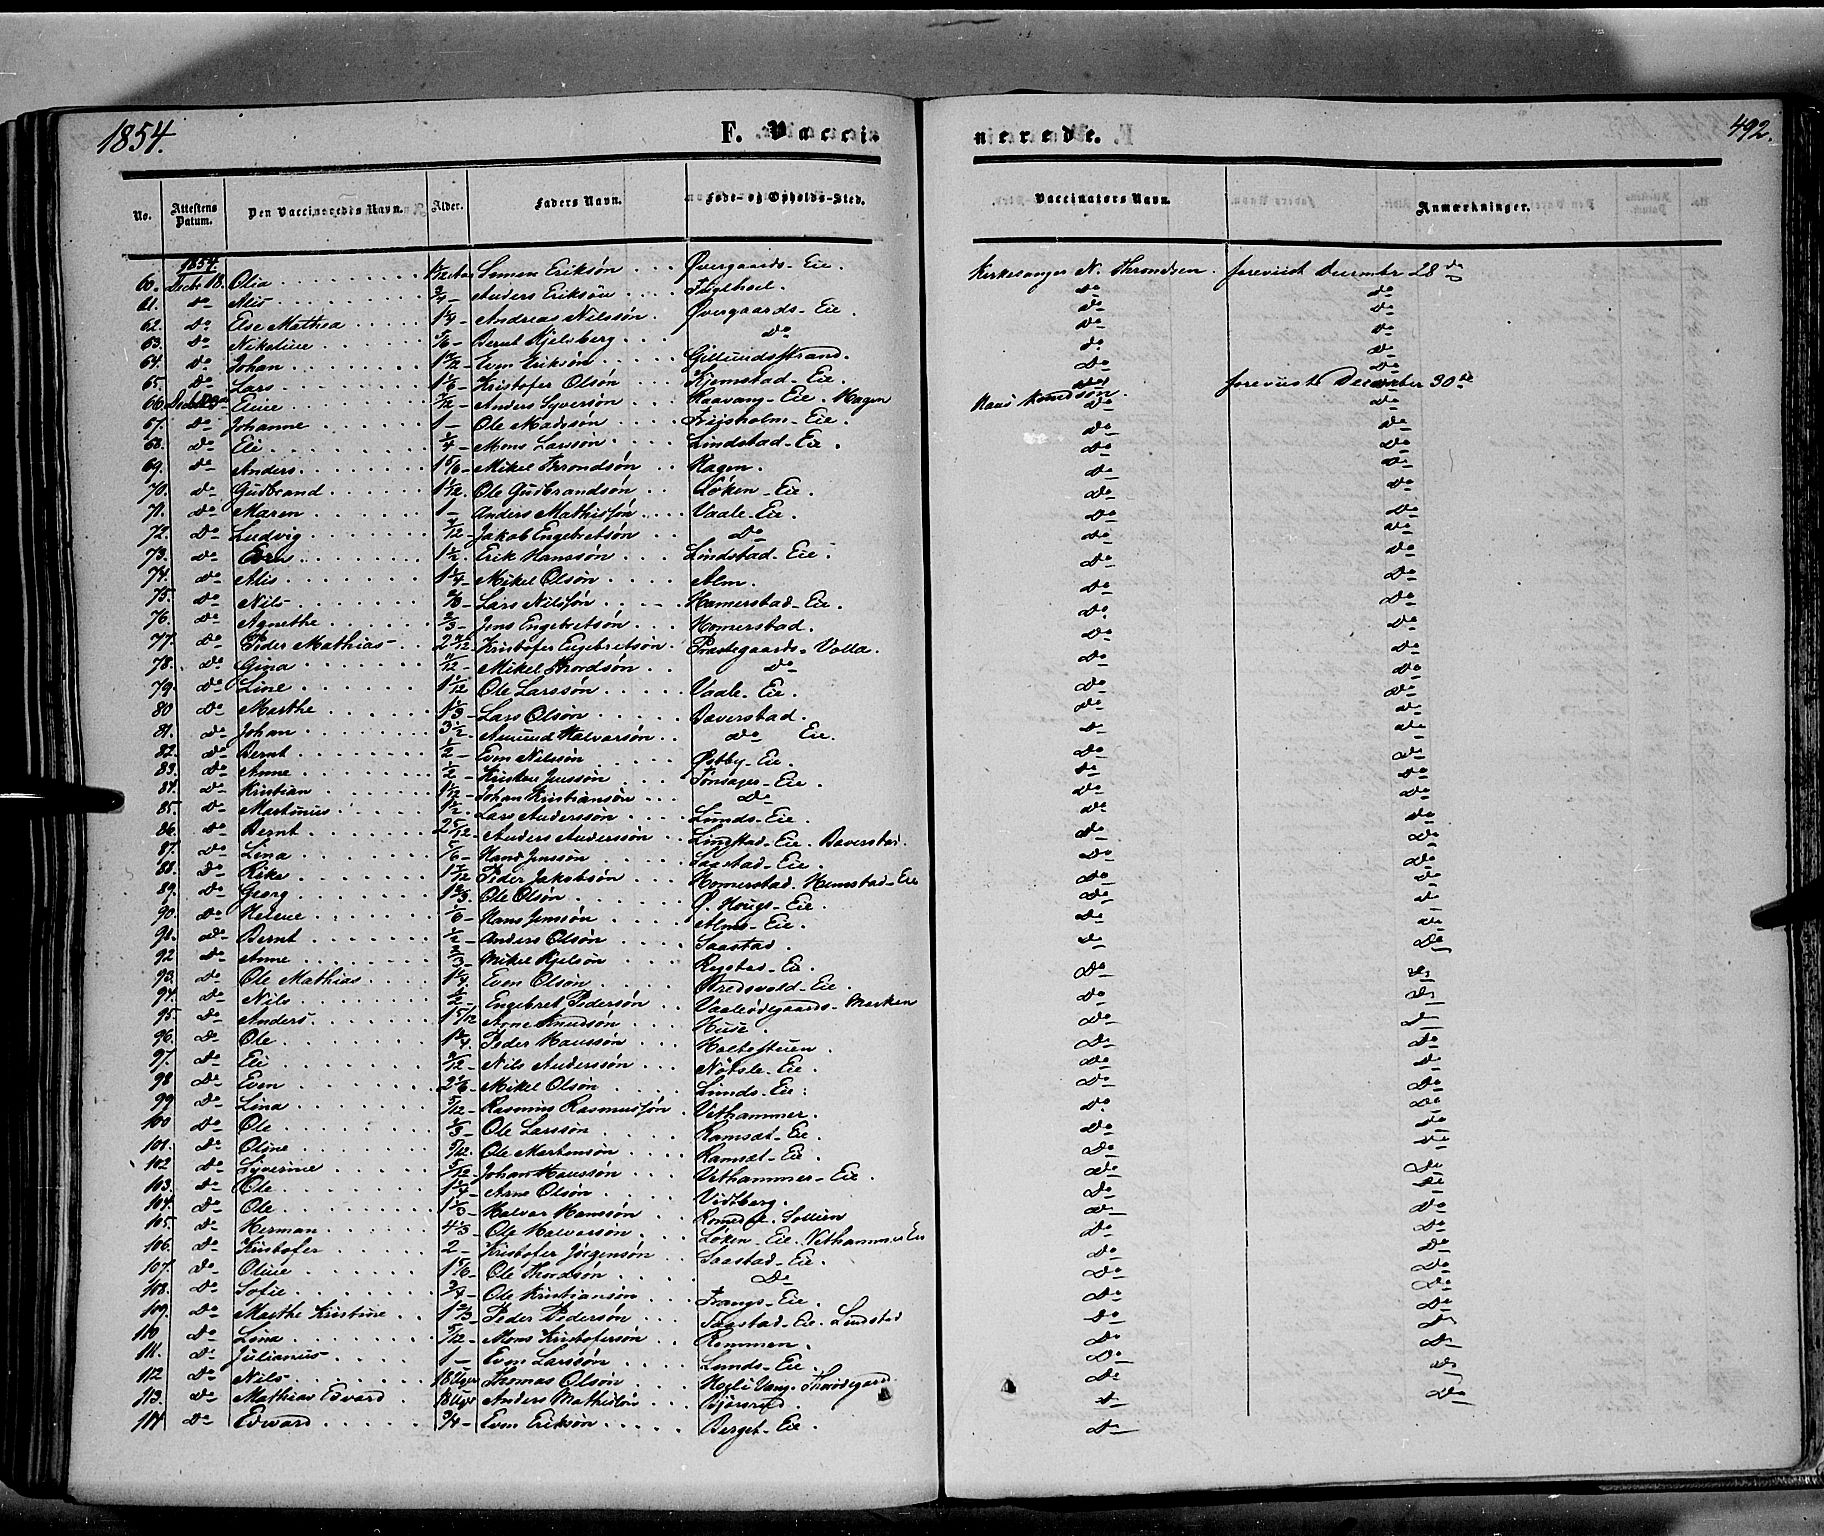 1854.
F. Vacci-
nerede.
492.
No. Attestens Datum. Den Vaccineredes Navn. Alder. Faders Navn. Føde- og Opholds-Sted. Vaccinators Navn. Anmærkninger.
1854
60. Decbr 18. Olia Simen Eriksøn Øvergaards-Eie. Kirkesanger N. Throndsen. foreviist December 28de
61. Do Alis 3/4 Anders Eriksøn Do Do
62. Do Else Mathea 1 1/4 Andreas Nilssøn. Øvergaards-Eie. Do Do
63. Do Nikoline 5/6 Bernt Kjelsberg Do Do Do
64. Do Johan Even Eriksøn Gillundsstrand. Do Do
65. Do Lars 1 1/6 Kristofer Olsøn Kjemstad-Eie. Do Do
66. Eline Anders Syversøn Raavang-Eie. Hagen Hans Knudsøn. foreviist December 30te
67. Do Johanne 1 Ole Madssøn Frisholm-Eie. Do Do
68. Do Eli 3/4 Mons Larssøn Lindstad-Eie. Do Do
69. Do Anders 1 5/6 Mikel Throndsøn Hagen. Do Do
70. Do Gudbrand 1 1/12 Ole Gudbrandsøn Løken-Eie. Do Do
71. Do Maren 1 Anders Mathissøn Vaale-Eie. Do Do
72. Do Ludvig Jakob Engebretsøn Do Do Do
73. Do Even 1 1/2 Erik Hanssøn Lindstad-Eie. Do Do
74. Do Alis 1 1/4 Mikel Olsøn Alm. Do Do
75. Do Nils Lars Nilssøn Hamerstad-Eie. Do Do
76. Do Agnethe 2/3 Jens Engebretsøn Homerstad. Do Do
77. Do Peder Mathias Kristofer Engebretsøn Præstegaards-Volla. Do Do
78. Do Gina 11/12 Mikel Thordsøn Do Do Do
79. Do Line 1 1/12 Ole Larssøn Vaale-Eie. Do Do
80 Do Marthe 1 1/3 Lars Olsøn Baverstad. Do Do
81. Do Johan 3 1/2 Amund Halvorsøn Do Eie. Do Do
82. Do Bernt 1/2 Even Nilssøn Østby-Eie. Do Do
83. Do Anne 1/2 Kristen Jenssøn Tønsager-Eie. Do Do
84. Do Kristian 1 1/12 Johan Kristiansøn Do Do Do
85. Do Martinus 1 1/2 Lars Anderssøn Lunds-Eie. Do Do
86. Do Bernt 2 5/12 Anders Anderssøn Lindstad-Eie. Baverstad. Do Do
87. Do Lina Hans Jenssøn Saastad-Eie. Do Do
88. Do Rika 1 1/12 Peder Jakobsøn Homerstad. Hemstad-Eie Do Do
89. Do Georg 1 2/3 Ole Olsøn Ø. Hougs-Eie. Do Do
90. Do Helene 1/6 Hans Jenssøn Alms-Eie. Do Do
91. Do Bernt 1/2 Anders Olsøn Saastad. Do Do
92 Do Anne 2/3 Mikel Kjelsøn Rystad-Eie. Do Do
93. Do Ole Mathias 1 1/4 Even Olsøn Stredsvold-Eie. Do Do
94. Do Nils 1/2 Engebret Pedersøn Vaaleødegaards-Marken Do Do
95. Do Anders 1 5/12 Arne Knudsøn Huse. Do Do
96. Do Ole Peder Hanssøn Holtestuen. Do Do
97. Do Eli Nils Anderssøn Nøtsle-Eie. Do Do
98 Do Even Mikel Olsøn Lunds-Eie. Do Do
99 Do Lina 5/12 Rasmus Rasmussøn Vethammer. Do Do
100 Do Ole 1/3 Ole Larssøn Ramsæt-Eie. Do Do
101. Do Oline Ole Martinsøn Ramsæt-Eie. Do Do
102 Do Syverine 5/12 Johan Hanssøn Vethammer-Eie. Do Do
103. Do Ole 1 1/4 Arne Olsøn Vidtberg. Do Do
104. Do Ole 1 1/3 Halvor Hanssøn Romedal. Sollien Do Do
105. Do Herman 4 1/3 Ole Halvorsøn Løken-Eie. Vethammer Eie Do Do
106. Do Kristofer 2 Kristofer Jørgensøn Saastad-Eie. Do Do
107. Do Oline 1 5/6 Ole Thordsøn Do Do Do
108. Do Sofie 3/4 Ole Kristiansøn Frangs-Eie. Do Do
109. Do Marthe Kristine 1 2/3 Peder Pedersøn Saastad-Eie. Lindstad Do Do
110 Do Lina 5/12 Mons Kristofersøn Rommen. Do Do
111. Do Julianus 1 Even Larssøn Lunds-Eie. Do Do
112 Do Nils 18 Uger Thomas Olsøn Hogli Vang. Do Do
113. Do Mathias Edvard 18 Uger Anders Mathisøn Do Do
114. Do Edward 3/4 Even Eriksøn Berget-Eie. Do